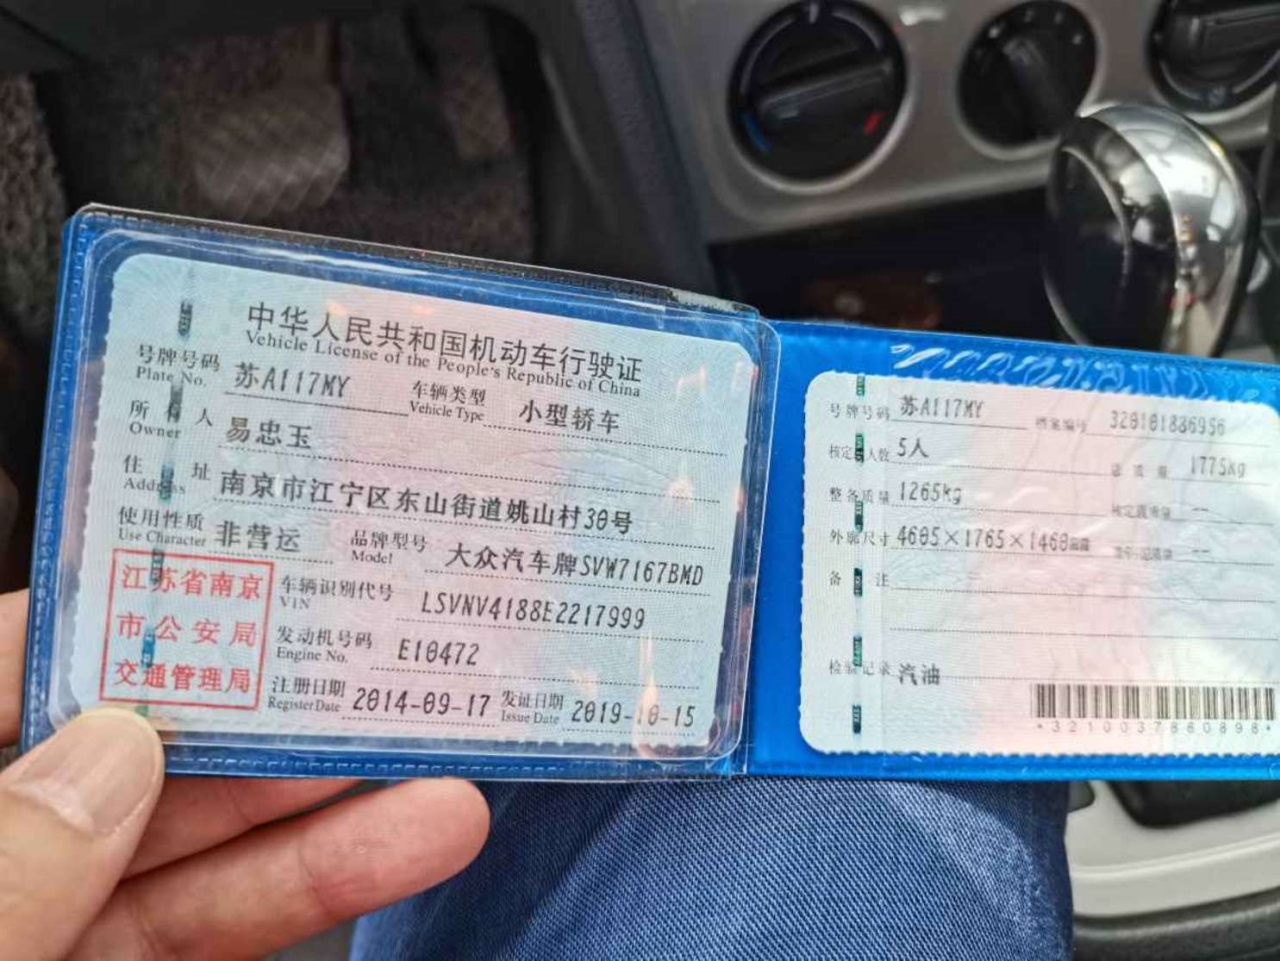 中华人民共和国机动车行驶证
Vehicle License of the People's Republic of China
号牌号码 苏A117MY 车辆类型 小型轿车
Plate No. Vehicle Type
所有人 易忠玉
Owner
住址 南京市江宁区东山街道姚山村30号
Address
使用性质 非营运 品牌型号 大众汽车牌SVW7167BMD
Use Character Model
江苏省南京
市公安局
交通管理局
车辆识别代号 LSVNV4188E2217999
VIN
发动机号码 E10472
Engine No.
注册日期 2014-09-17 发证日期 2019-10-15
Register Date Issue Date
号牌号码 苏A117MY 档案编号 320101886956
核定载人数 5人 总质量 1775kg
整备质量 1265kg 核定载质量 --
外廓尺寸 4605×1765×1460mm --
备注
检验记录 汽油
*3210037860898*